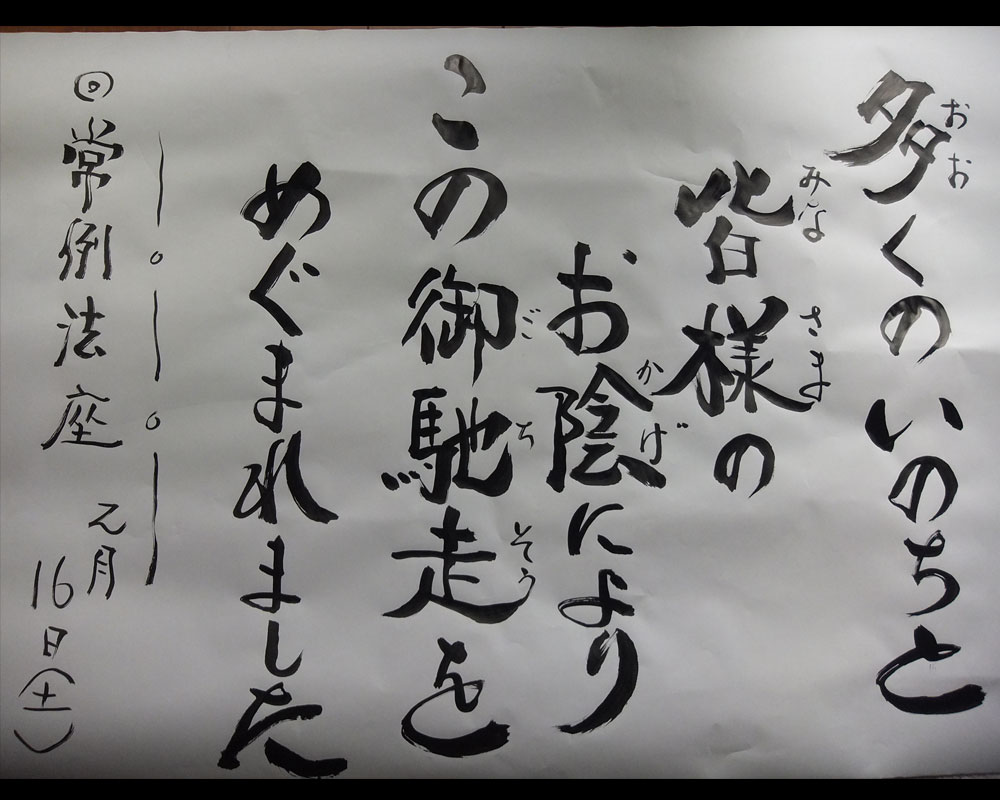 多くのいのちと
おお
皆様の
みな さま
お陰により
かげ
この御馳走を
ご ち そう
めぐまれました
◎常例法座
元月
16日(土)